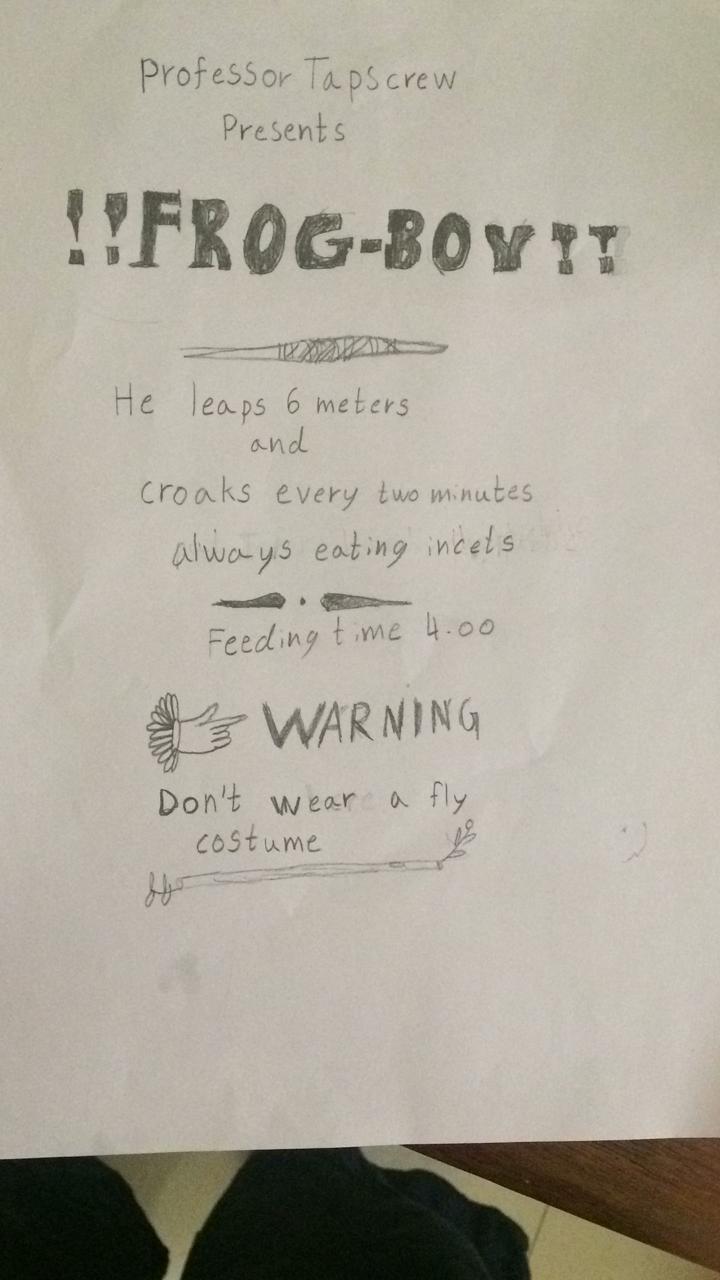 Professor Tapscrew
Presents
!!FROG-BOY!!
He leaps 6 meters
and
croaks every two minutes
always eating incets
Feeding time 4.00
WARNING
Don't wear a fly
costume